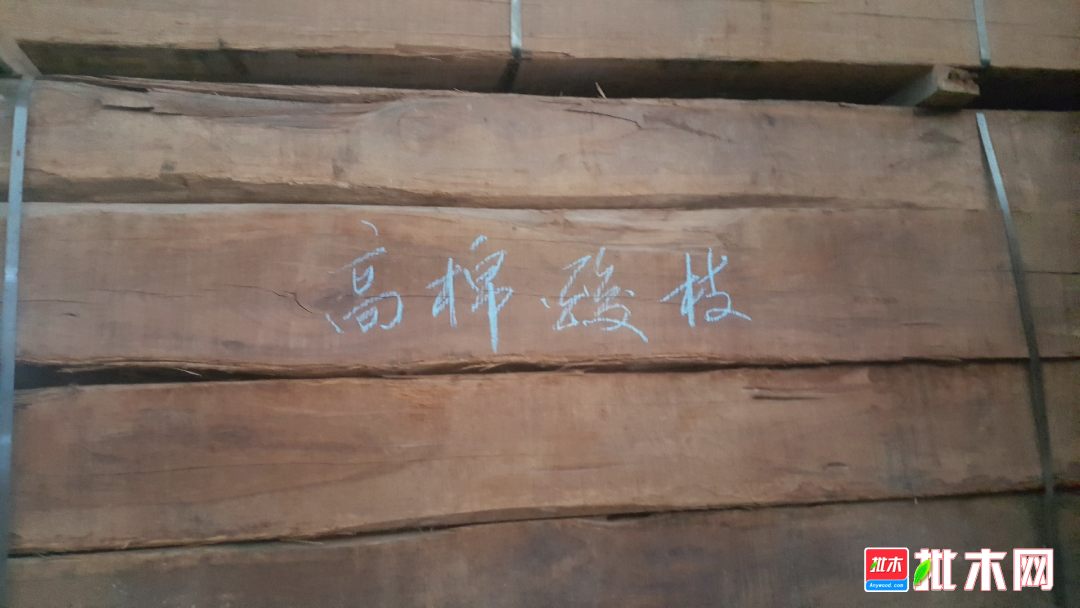 高棉酸枝
批木 批木网
Anywood.com